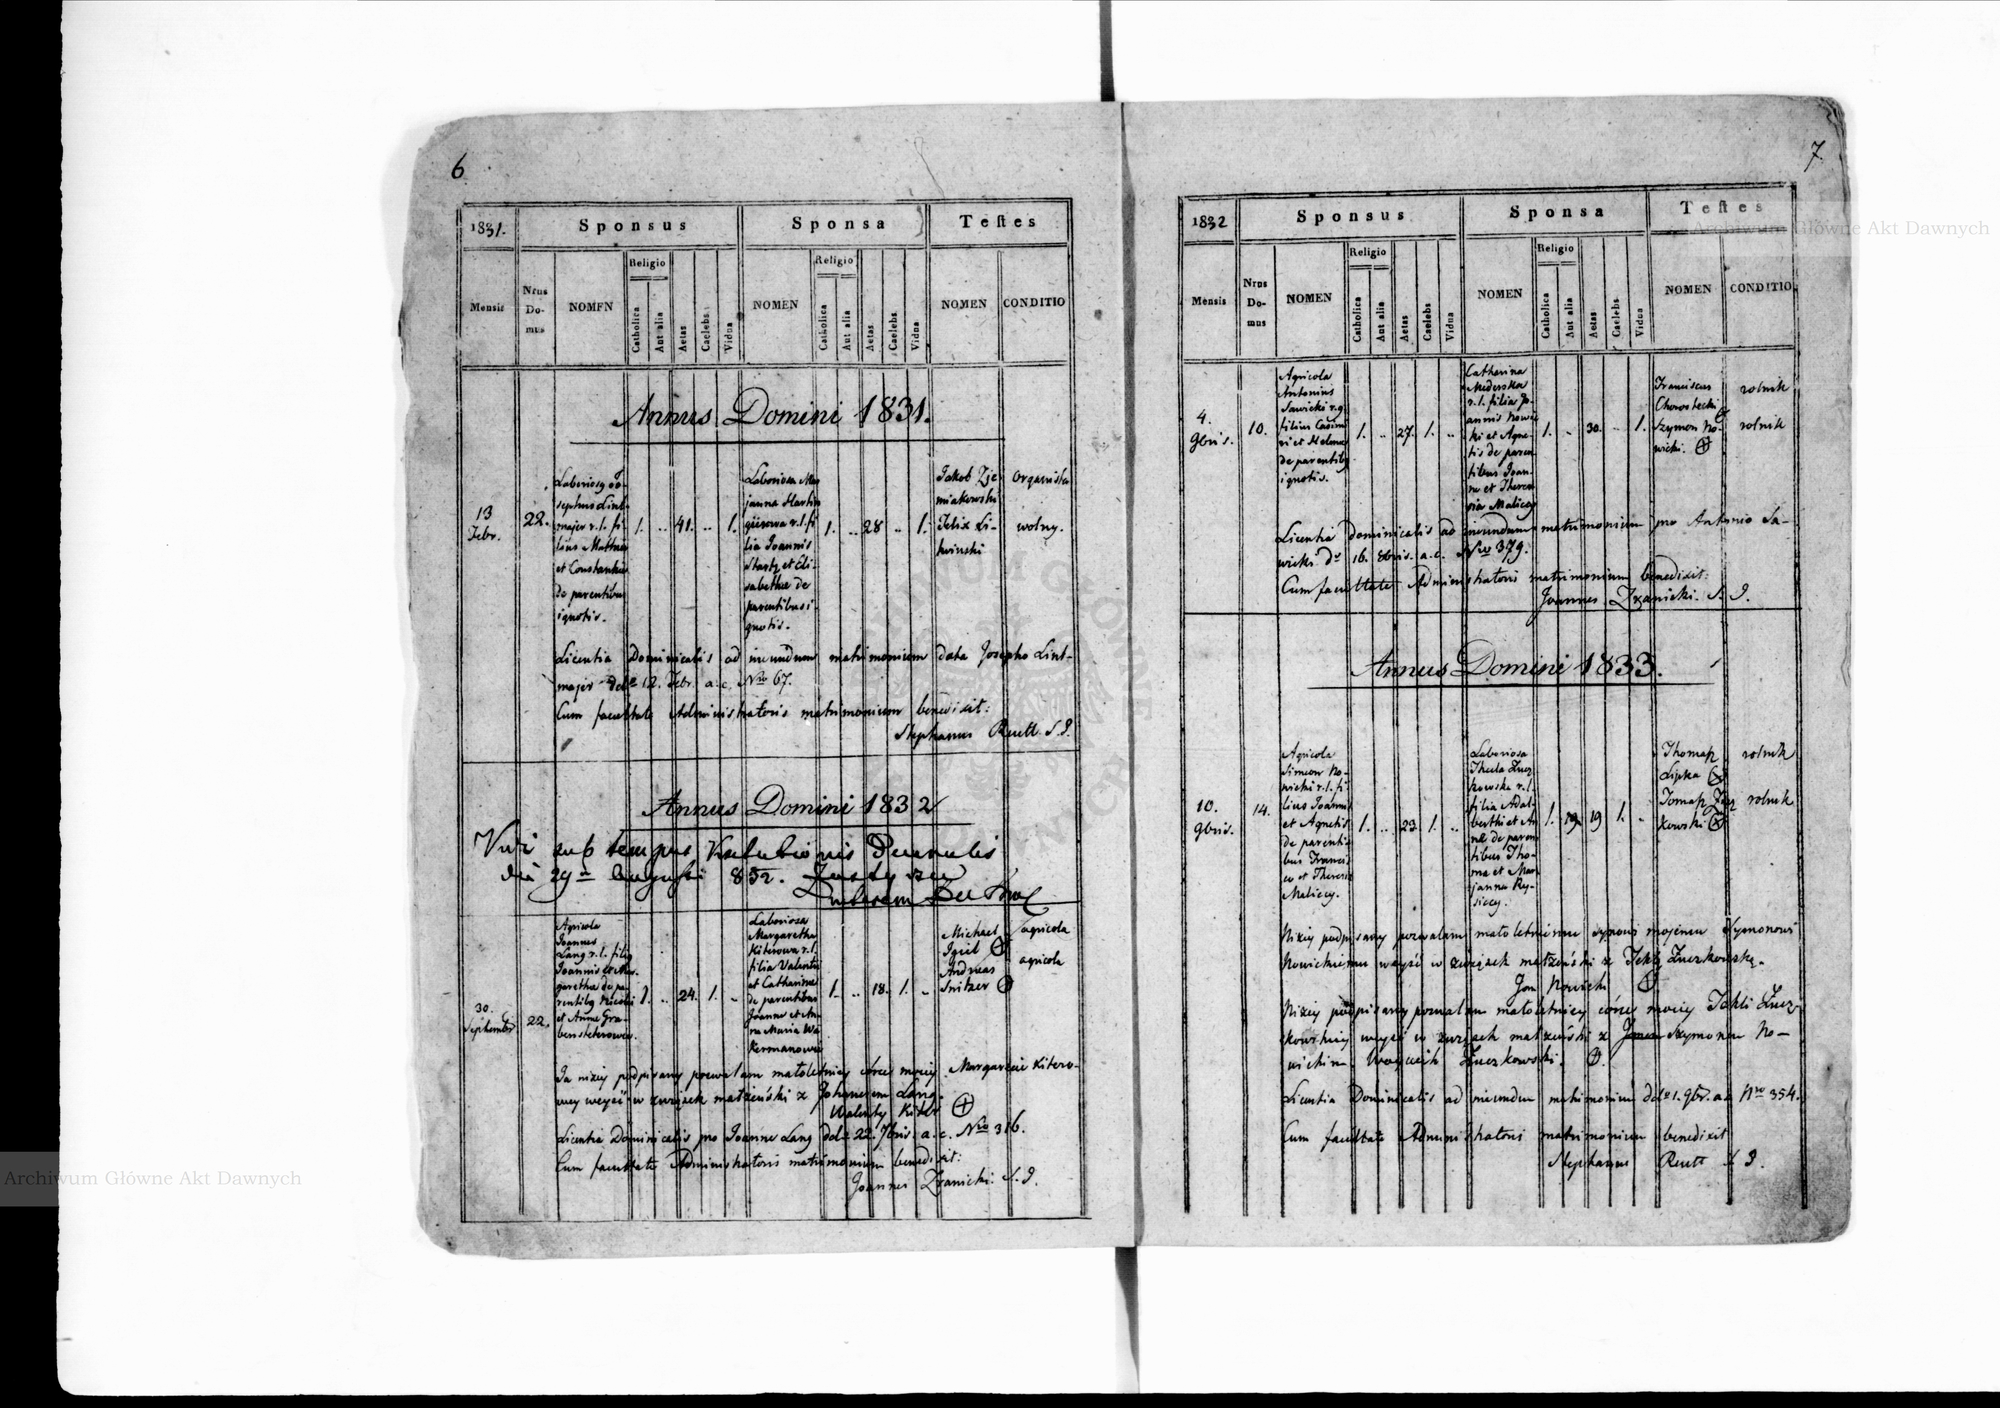 6
1831.
Sponsus
Sponsa
Testes
Mensis
Nrus Do-mus
NOMEN
Religio
Catholica
Aut alia
Aetas
Caelebs
Vidua
NOMEN
Religio
Catholica
Aut alia
Aetas
Caelebs
Vidua
NOMEN
CONDITIO
Annus Domini 1831.
13
Febr.
22.
Josephus Lint-
major r.l. fi-
lius Matthiae
et Constantiae
de parentibus
ignotis.
1.
..
41.
..
1.
Laboriosa Ma-
janna Martin
r.l. fi
lia Joannis
et Eli-
sabethae de
parentibus i-
gnotis.
1.
..
28
..
1.
Jakob Zie
miakowski
Felix Li-
twinski
Organista
wolny.
Licentia Dominicalis ad ineundum matrimonium data Josepho Lint-
major 12. Febr. a.c. Nro 67.
Cum facultate Administratoris matrimonium benedixit:
Stephanus Reutt S.J.
Annus Domini 1832
Vidi sub tempus Visitationis Decanalis
die 29na Augusti 832.
Agricola
Joannes
Lang r.l. filig
Joannis et Mar-
garetha de pa-
rentibg Nicolai
et Annae Gra-
bensteterowa.
30.
Septembris
22.
1.
..
24.
1.
..
Laboriosa
Margaretha
Kiterowa r.l.
filia Valentii
et Catharinae
de parentibus
Joanne et An-
na Maria Wa-
kermanowa
1.
..
18.
1.
..
Michael
Igiel
Andreas
Snitzer
agricola
agricola
Ja niżey podpisany pozwalam małoletniey córce moiey Margarecie Kitero-
wey weyść w związek małżeński z Johannem Lang.
Walenty Kiter
Licentia Dominicalis pro Joanne Lang ddto 22. 7bris. a.c. Nro 316.
Cum facultate Administratoris matrimonium benedixit:
Joannes Zranicki. S.J.
7
1832
Sponsus
Sponsa
Testes
Mensis
Nrus Do-mus
NOMEN
Religio
Catholica
Aut alia
Aetas
Caelebs
Vidua
NOMEN
Religio
Catholica
Aut alia
Aetas
Caelebs
Vidua
NOMEN
CONDITIO
4.
9bris.
10.
Agricola
Antonius
Sawicki r.g.
filius Casimi
ri et Helenae
de parentibg
ignotis.
1.
..
27.
1.
..
Catherina
Mederska
r.l. filia Jo-
annis Nowic
ki et Agne-
tis de paren
tibus Joan-
ne et There-
sia Malicey
1.
..
30.
..
1.
Franciscus
Chorostecki
Szymon No-
wicki.
rolnik
rolnik
Licentia dominicalis ad ineundum matrimonium pro Antonio Sa-
wicki dto 16. 8bris. a.c. Nro 379.
Cum facultate Administratoris matrimonium benedixit:
Joannes Zranicki. S.J.
Annus Domini 1833.
10.
9bris.
14.
Agricola
Simeon No-
wicki r.l. fi-
lius Joannis
et Agnetis
de parenti-
bus Francis-
co et Theresia
Malicey.
1.
..
23.
1.
..
Laboriosa
Thecla Zucz
kowska r.l.
filia Adal-
berthi et An-
nae de paren-
tibus Tho-
ma et Mar-
janna Ry-
siccy.
1.
19
1.
..
Thomasz
Lipka
Tomasz Zucz
kowski
rolnik
rolnik
Niżey podpisany pozwalam małoletniemu synowi mojemu Szymonowi
Nowickiemu wnyść w związek małżeński z Teklą Zuczkowską.
Jan Nowicki
Niżey podpisany pozwalam małoletniey córce moiey Tekli Zucz-
kowskiey wnyść w związek małżeński z Szymonem No-
wickim Woyciech Zuczkowski.
Licentia Dominicalis ad ineundum matrimonium ddto 1. 9br. a.c. Nro 354.
Cum facultate Administratoris matrimonium benedixit
Stephanus Reutt S.J.
Archiwum Główne Akt Dawnych
Archiwum Główne Akt Dawnych